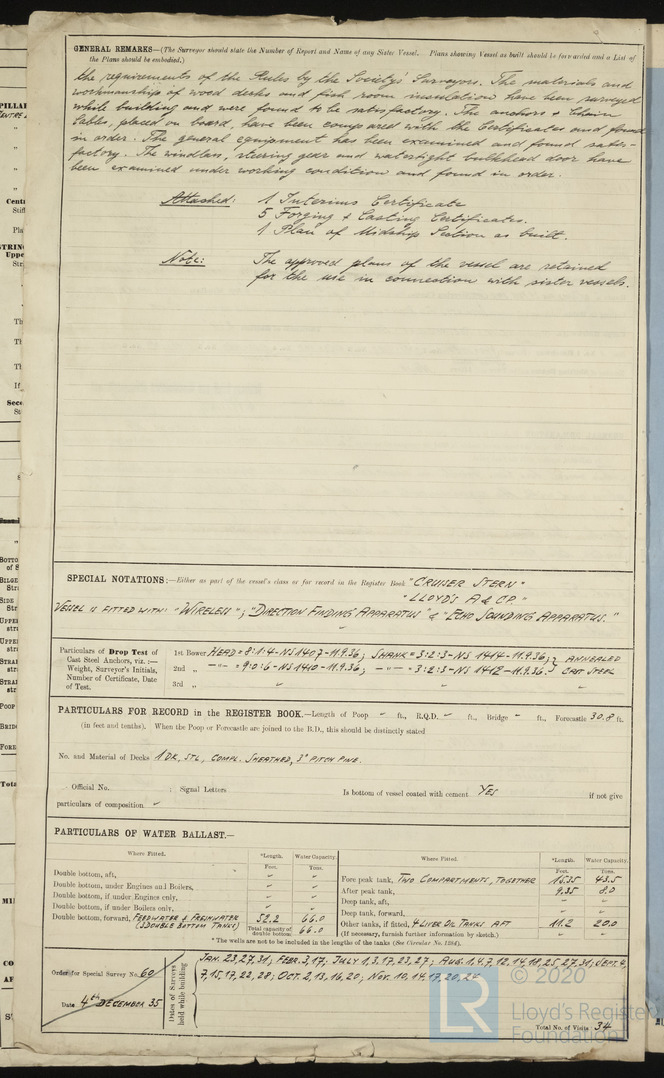 GENERAL REMARKS—(The Surveyor should state the Number of Report and Name of any Sister Vessel. Plans showing Vessel as built should be forwarded and a List of
the Plans should be embodied.)
the requirements of the Rules by the Society's Surveyors. The materials and
workmanship of wood decks and fish room insulation have been surveyed
while building and were found to be satisfactory. The anchors & chain
cables, placed on board, have been compared with the Certificates and found
in order. The general equipment has been examined and found satis-
factory. The windlass, steering gear and watertight bulkhead door have
been examined under working condition and found in order.
Attached: 1 Interims Certificate
5 Forging & Casting Certificates.
1 Plan of Midship Section as built.
Note: The approved plans of the vessel are retained
for the use in connection with sister vessels.
SPECIAL NOTATIONS:—Either as part of the vessel's class or for record in the Register Book "CRUISER STERN"
"LLOYD'S A & CP."
VESSEL IS FITTED WITH: "WIRELESS"; "DIRECTION FINDING APPARATUS" & "ECHO SOUNDING APPARATUS."
Particulars of Drop Test of
Cast Steel Anchors, viz.:—
Weight, Surveyor's Initials,
Number of Certificate, Date
of Test.
1st Bower HEAD = 8:1:4-NS 1407-11.9.36; SHANK = 3:2:3-NS 1414-11.9.36; } ANNEALED
2nd „ —"— = 9:0:6-NS 1410-11.9.36; —"— = 3:2:3-NS 1412-11.9.36. } CAST STEEL
3rd „ " " "
PARTICULARS FOR RECORD in the REGISTER BOOK.—Length of Poop " ft., R.Q.D. " ft., Bridge " ft., Forecastle 30.8 ft.
(in feet and tenths). When the Poop or Forecastle are joined to the B.D., this should be distinctly stated
No. and Material of Decks 1 DK, STL, COMPL. SHEATHED, 3" PITCH PINE.
Official No. ; Signal Letters Is bottom of vessel coated with cement YES if not give
particulars of composition "
PARTICULARS OF WATER BALLAST.—
Where Fitted. *Length. Water Capacity. Where Fitted. *Length. Water Capacity.
Feet. Tons. Feet. Tons.
Double bottom, aft, " "
Double bottom, under Engines and Boilers, " "
Double bottom, if under Engines only, " "
Double bottom, if under Boilers only, " "
Double bottom, forward, FEEDWATER & FRESHWATER 52.2 66.0
(3 DOUBLE BOTTOM TANKS) Total capacity of double bottom 66.0
Fore peak tank, TWO COMPARTMENTS, TOGETHER 16.35 43.5
After peak tank, 9.35 8.0
Deep tank, aft, " "
Deep tank, forward, " "
Other tanks, if fitted, 4 LIVER OIL TANKS AFT 11.2 20.0
(If necessary, furnish further information by sketch.) " "
* The wells are not to be included in the lengths of the tanks (See Circular No. 1284).
Order for Special Survey No. 60
Date 4th DECEMBER 35
Dates of Surveys held while building
JAN. 23, 27, 31; FEBR. 3, 17; JULY 1, 3, 17, 23, 27; AUG. 1, 4, 7, 12, 14, 18, 25, 27, 31; SEPT. 4,
7, 15, 17, 22, 28; OCT. 2, 13, 16, 20; NOV. 10, 14, 17, 20,
Total No. of Visits 34
© 2020
LR
Lloyd's Register
Foundation